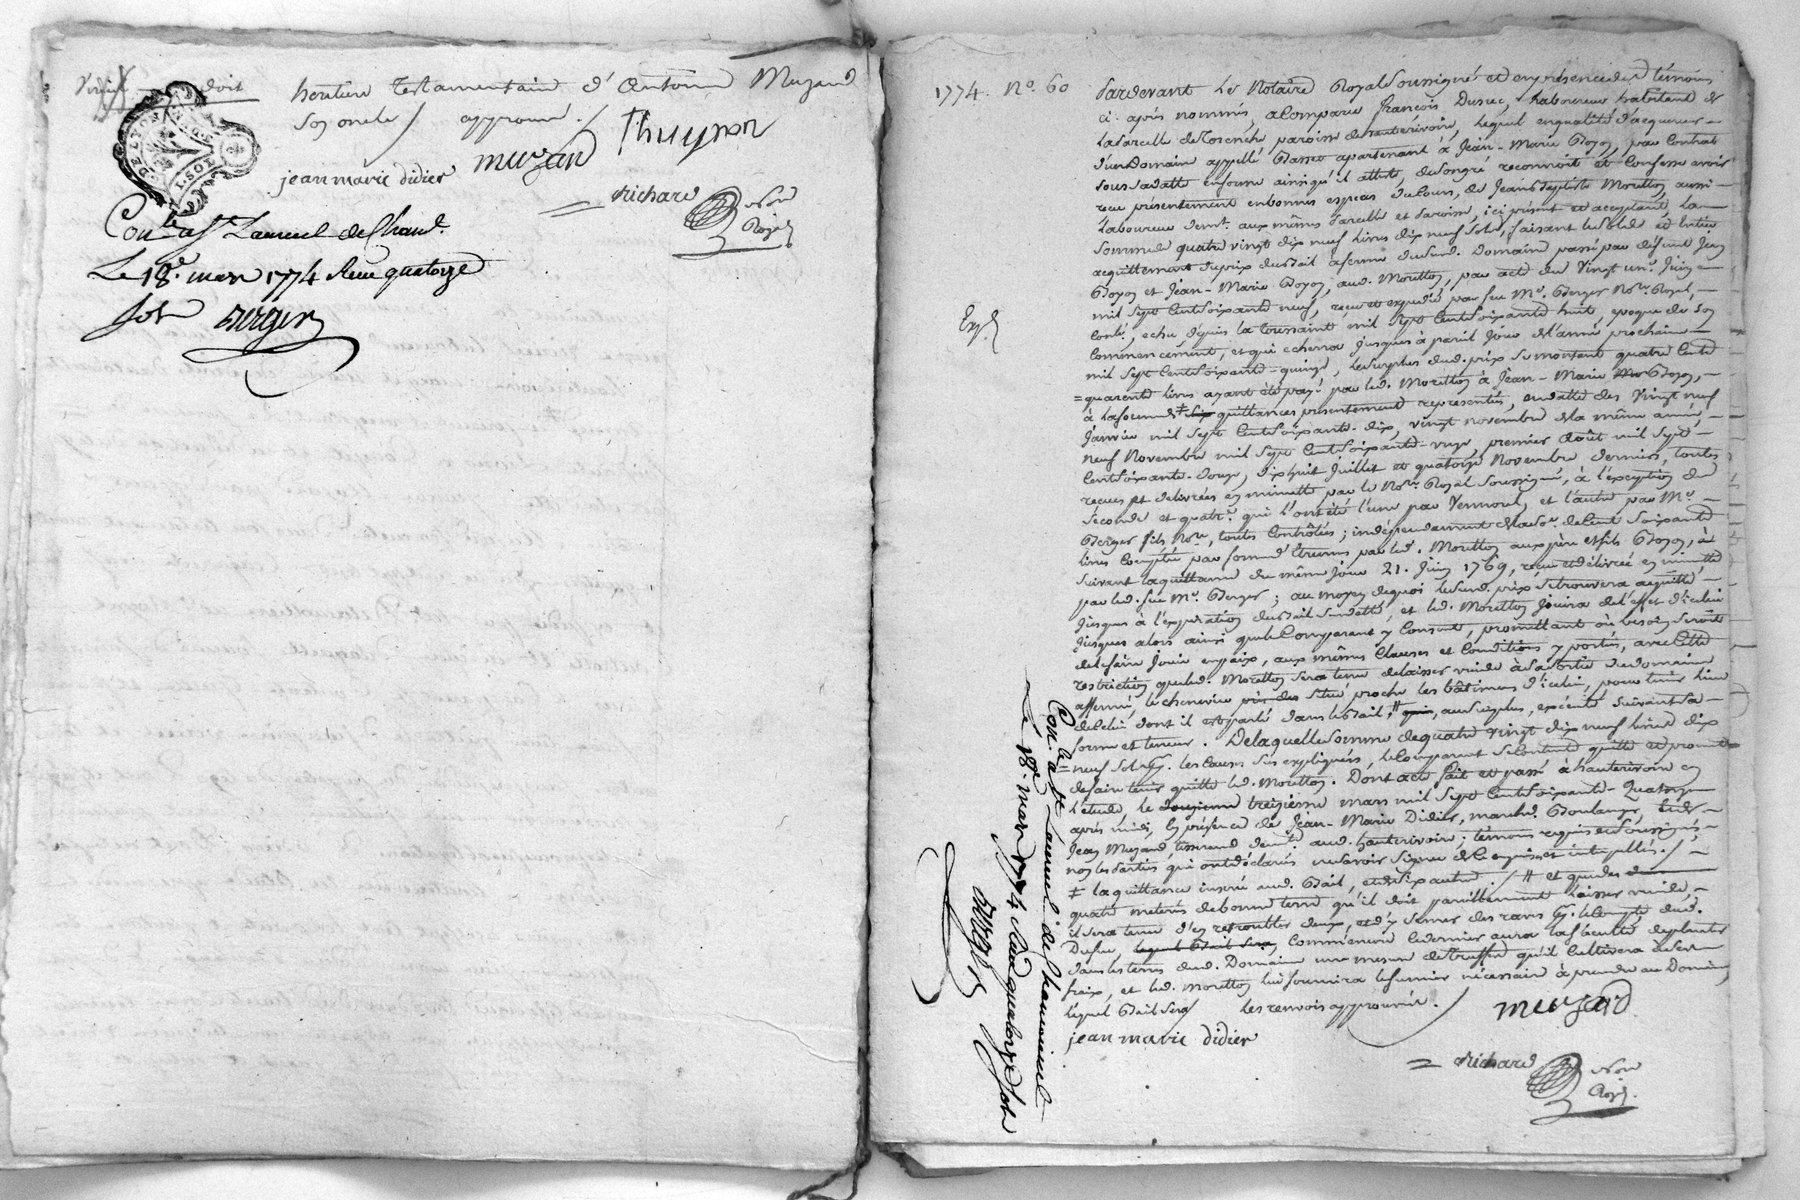 doit
heritiere testamentaire d'Antoine Muzard
son oncle / approuvé /
jean marie didier muzard Thuynon
Richard
Nore
Royal
DE LYON
Con.le a St Laurent de Cham.
Le 18e. mars 1774 Reçu quatorze
sols Berger
1774. No. 60
Expd
Pardevant Le Notaire Royal soussigné et en presence des témoins
ci-après nommés, a comparu françois Dusuc, Laboureur habitant de
la parcelle de paroisse de hauterivoir, lequel en qualité d'acquereur
d'un Domaine appellé Basset apartenant à Jean-Marie Poyon, par Contrat
sous sa datte en forme ainsi qu'il atteste, de son gré reconnoit et Confesse avoir
reçu présentement en bonnes especes de Cours, de Jean Baptiste Moretton, aussi
Laboureur demt. aux mêmes parcelle et paroisse, ici présent et acceptant, La
somme de quatre vingt dix neuf Livres dix neuf sols, faisant le solde et Entier
acquittement du prix du Bail à ferme dud. Domaine passé par défunt Jean
Poyon et Jean-Marie Poyon, aud. Moretton, par acte du Vingt un. Juin
mil sept Cent soixante neuf, reçu et expedié par feu Me. Berger Nore. Royal,
Conlé, echu depuis la toussaint mil sept Cent soixante huit, epoque de son
Commencement, et qui echerra jusques à pareil Jour de l'année prochaine
mil sept Cent soixante-quinze, le surplus dud. prix se montant quatre Cent
quarante livres ayant été payé par led. Moretton à Jean-Marie Poyon,
à la forme de ‡ six quittances présentement representées, en datte des Vingt neuf
Janvier mil sept Cent soixante-dix, vingt novembre de la même année,
neuf Novembre mil sept Cent soixante-onze, premier Août mil sept
Cent soixante-douze, dix huit Juillet et quatorze Novembre dernier, toutes
reçues et delivrées en minutte par le Nore. Royal soussigné, à l'exception de
seconde et quatre. qui l'ont été l'une par Vernoul, et l'autre par Me.
Berger fils Nore, toutes Contrôlées; indépendament de la so. de Cent soixante
livres Comptée par forme d'Étrennes par led. Moretton aux père et fils Poyon, à
suivant la quittance du même jour 21. Juin 1769, reçue et délivrée en minutte
par led. feu Me. Berger; au moyen de quoi le susd. prix se trouvera acquitté
Jusques à l'expiration du Bail susdatté, et led. Moretton Jouira de l'effet d'icelui
Jusques alors ainsi que le Comparant y Consent, promettant où besoin seroit
de le faire jouir en paix, aux mêmes Clauses et Conditions y portées, avec Cette
restriction que led. Moretton sera tenu de laisser vuide à sa sortie du domaine
affermé, le cheneviere situé proche les bâtimens d'icelui, pour tenir lieu
de Celui dont il est parlé dans le Bail, # au surplus, executé suivant sa
forme et teneur. De laquelle somme de quatre vingt dix neuf livres dix
neuf sols pr. les causes sus expliquées, le Comparant se Contente quitte et promet
de faire tenir quitte led. Moretton. Dont acte fait et passé à hauterivoir en
l'etude, le douzieme treizieme mars mil sept Cent soixante-Quatorze
après midi, En présence de Jean-Marie Didier, marchd. Boulanger, et de
Jean Muzard tisserand demt. aud. hauterivoir; témoins requis et soussignés,
non les parties qui ont déclaré ne savoir signer de Ce enquises et interpellées. /
‡ la quittance inserée aud. Bail, et de six autres. / # et que des
quatre meterées de bonne terre qu'il doit pareillement laisser vuide,
il sera tenu d'en retroubler deux, et d'y semer des raves pr. le Compte dud.
Dusuc, lequel Bail sera, Comme aussi Ce dernier aura la faculté de planter
dans les terres dud. Domaine une mesure de truffes qu'il Cultivera à ses
fraix, et led. Moretton lui fournira le fumier nécessaire à prendre au Domaine,
lequel Bail sera / les renvois approuvés. /
muzard
jean marie didier
Richard
Nore
Royal
Con.le a St Laurent de Chamousset
Le 18e. mars 1774 Reçu quatorze sols
Berger